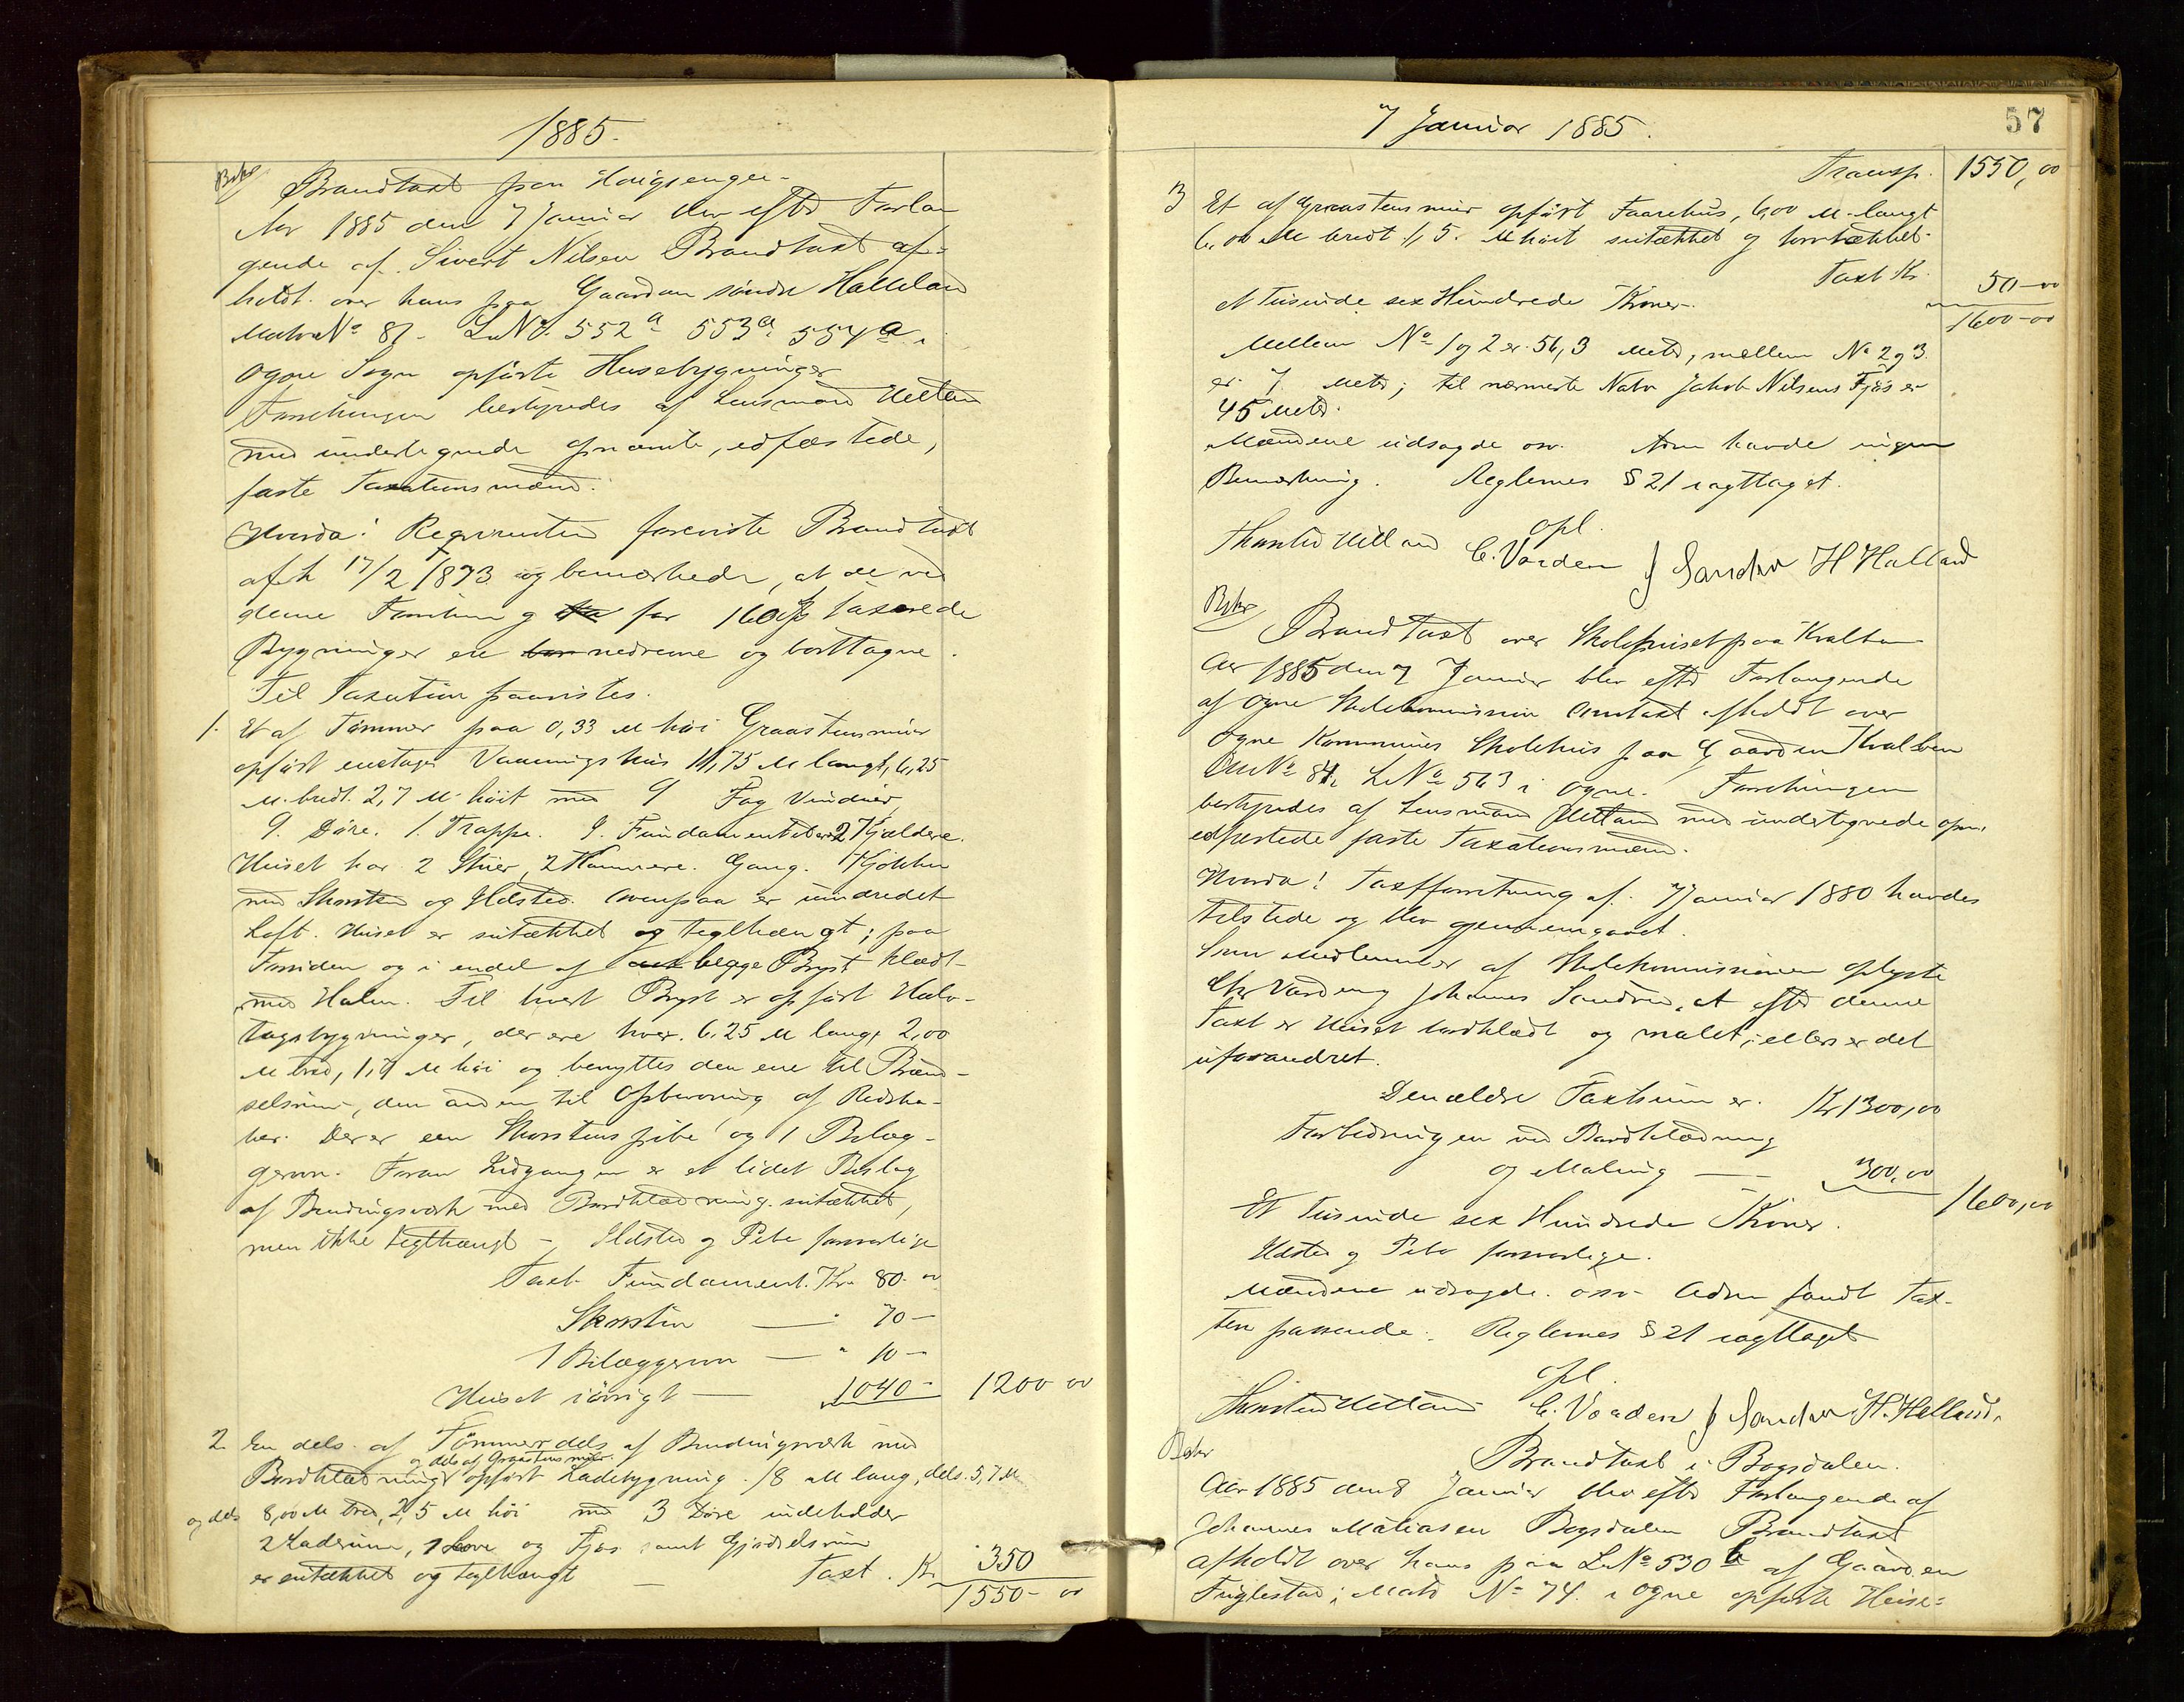 1885.
Bekr
Brandtaxt paa Haugsenger
Aar 1885 den 7 Januar blev efter Forlan
gende af Sivert Nilsen Brandtaxt af-
holdt over hans paa Gaarden søndre Helleland
Matr No 81. L No. 552a 553a 554a i
Ogne Sogn opførte Husebygninger
Forretningen bestyredes af Lensmand Uelland
med undertegnede opnævnte, edfæstede,
faste Taxationsmænd.
Hvorda! Requirenten foreviste Brandtaxt
afh 17/2 1873 og bemærkede, at de ved
denne Forretning for 160 taxerede
Bygninger ere nedrevne og borttagne.
Til Taxation paavistes.
1. Et af Tømmer paa 0,33 M høi Graastensmuur
opført enetages Vaaningshus 14,75 M langt, 6,25
M. bredt. 2,7 M. høit med 9 Fag Vinduer,
9. Døre. 1. Trappe. 9. Fundamentet 2 Kjældere.
Huset har 2 Stuer, 2 Kammere. Gang. Kjøkken
med Skorsten og Ildsted. Ovenpaa er uindredet
Loft. Huset er sutækket og teglhængt; paa
Forsiden og i endel af begge Bryst klædt
med Halen. Til hvert Bryst er opført Halv-
tagsbygninger, der ere hver. 6.25 M lang, 2,00
M bred, 1,7 M høi og benyttes den ene til Brænd-
selsrum, den anden til Opbevaring af Redska-
ber. Der er een Skorstenspibe og 1 Bilæg-
gerovn. Foran Indgangen er et lidet Beslag
af Bindingsværk med Bordklædning. sutækket,
men ikke teglhængt - Ildsted og Pibe forsvarlige
Taxt Fundament. Kr. 80. 00
Skorsten — " 70 -
1 Bilæggerovn — " 10 -
Huset iøvrigt — 1040 - 1200 00
2 En dels. af Tømmer dels af Bindingsværk med
og dels af Graastensmuur
Bordklædning opført Ladebygning. 18 M lang, dels. 5,7 M
og dels 8,00 M bred, 2,5 M høi med 3 Døre indeholder
2 Laderum, 1 Love og Fjøs samt Gjødselsrum
er sutækket og teglhængt — Taxt. Kr. 350
1550 - 00
7 Januar 1885.
57
Transp. 1550,00
3 Et af Graastensmuur opført Faarehus, 6,00 M. langt
6,00 M bredt 1,5. M høit sutækket og torvtækket.
Taxt Kr. 50-00
et Tusinde sex Hundrede Kroner.
1600-00
Mellem No 1 og 2 er 56,3 Meter, mellem No 2 og 3
er 7 Meter; til nærmeste Nabo Jakob Nilsens Fjøs er
45 Meter.
Mændene udsagde osv. Adm havde ingen
Bemærkning. Reglernes § 21 iagttaget.
opl.
Thorsten Uelland C. Vaaden J Sandve H Helland
Bekr
Brandtaxt over Skolehuset paa Kvalben
Aar 1885 den 7 Januar blev efter Forlangende
af Ogne Skolekommission Omtaxt afholdt over
Ogne Kommunes Skolehus paa Gaarden Kvalben
M No 84, L No 563 i Ogne. Forretningen
bestyredes af Lensmand Uelland med undertegnede opn.
edfæstede faste Taxationsmænd.
Hvorda! Taxtforretning af. 7 Januar 1880 havdes
tilstede og blev gjennemgaaet.
Som Medlemmer af Skolekommissionen oplyste
Chr Vaaden og Johannes Sandve, at efter denne
Taxt er Huset bordklædt og malet; ellers er det
uforandret.
Den ældre Taxtsum er. Kr 1300,00
Forbedringen ved Bordklædning
og Maling — 300,00
1600,00
Et Tusinde sex Hundrede Kroner.
Ildsted og Pibe forsvarlige.
Mændene udsagde. osv. Adm fandt Tax-
ten passende. Reglernes § 21 iagttaget
opl.
Thorsten Uelland C. Vaaden J Sandve H. Helland.
Bekr
Brandtaxt i Bogsdalen.
Aar 1885 den 8 Januar blev efter Forlangende af
Johannes Matiasen Bogsdalen Brandtaxt
afholdt over hans paa L No 530 b af Gaarden
Fuglestad; Matr No 74. i Ogne opførte Huse=